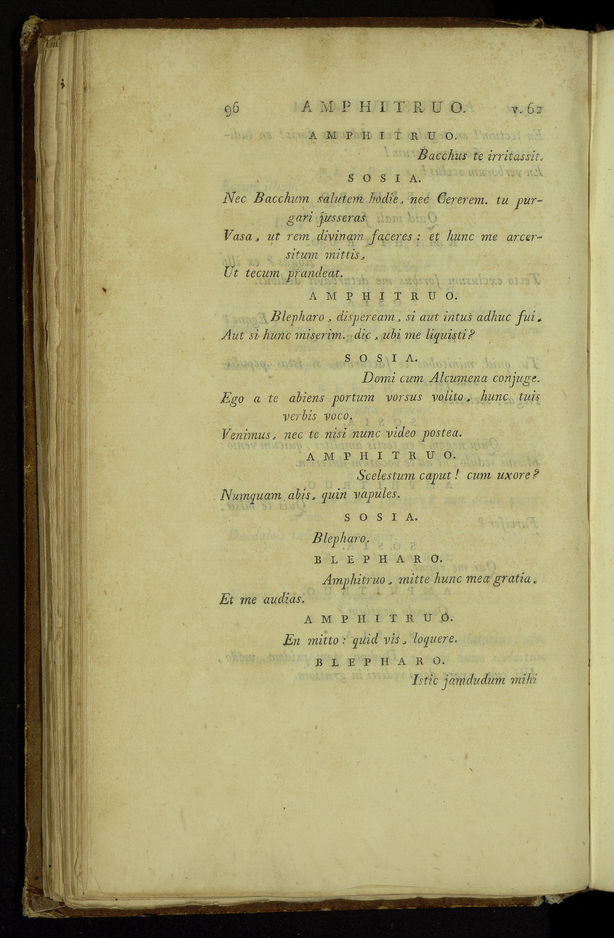 96 AMPHITRUO. v. 62
AMPHITRUO.
Bacchus te irritassit.
SOSIA.
Nec Bacchum salutem hodie, nec Cererem. tu pur-
gari jusseras
Vasa, ut rem divinam faceres : et hunc me arcer-
situm mittis,
Ut tecum prandeat.
AMPHITRUO.
Blepharo, dispeream, si aut intus adhuc fui,
Aut si hunc miserim. dic, ubi me liquisti?
SOSIA.
Domi cum Alcumena conjuge.
Ego a te abiens portum vorsus volito, hunc tuis
verbis voco.
Venimus, nec te nisi nunc video postea.
AMPHITRUO.
Scelestum caput! cum uxore?
Numquam abis, quin vapules.
SOSIA.
Blepharo.
BLEPHARO.
Amphitruo, mitte hunc mea gratia,
Et me audias.
AMPHITRUO.
En mitto : quid vis, loquere.
BLEPHARO.
Istic jamdudum mihi